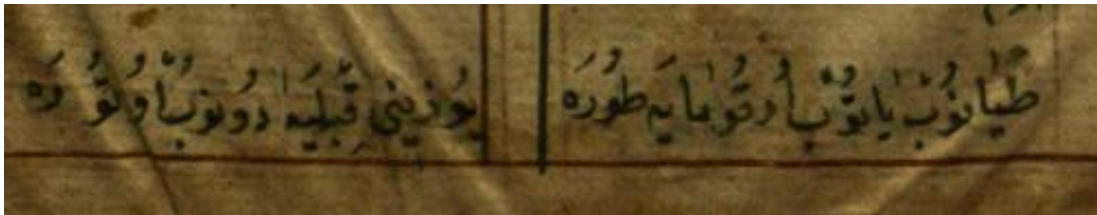 طَيَانُوبْ يَاتُوبْ اُوقُومَايَه طُورَه
يُوزِينِي قِبْلَيَه دُونُوبْ اُوتُورَه